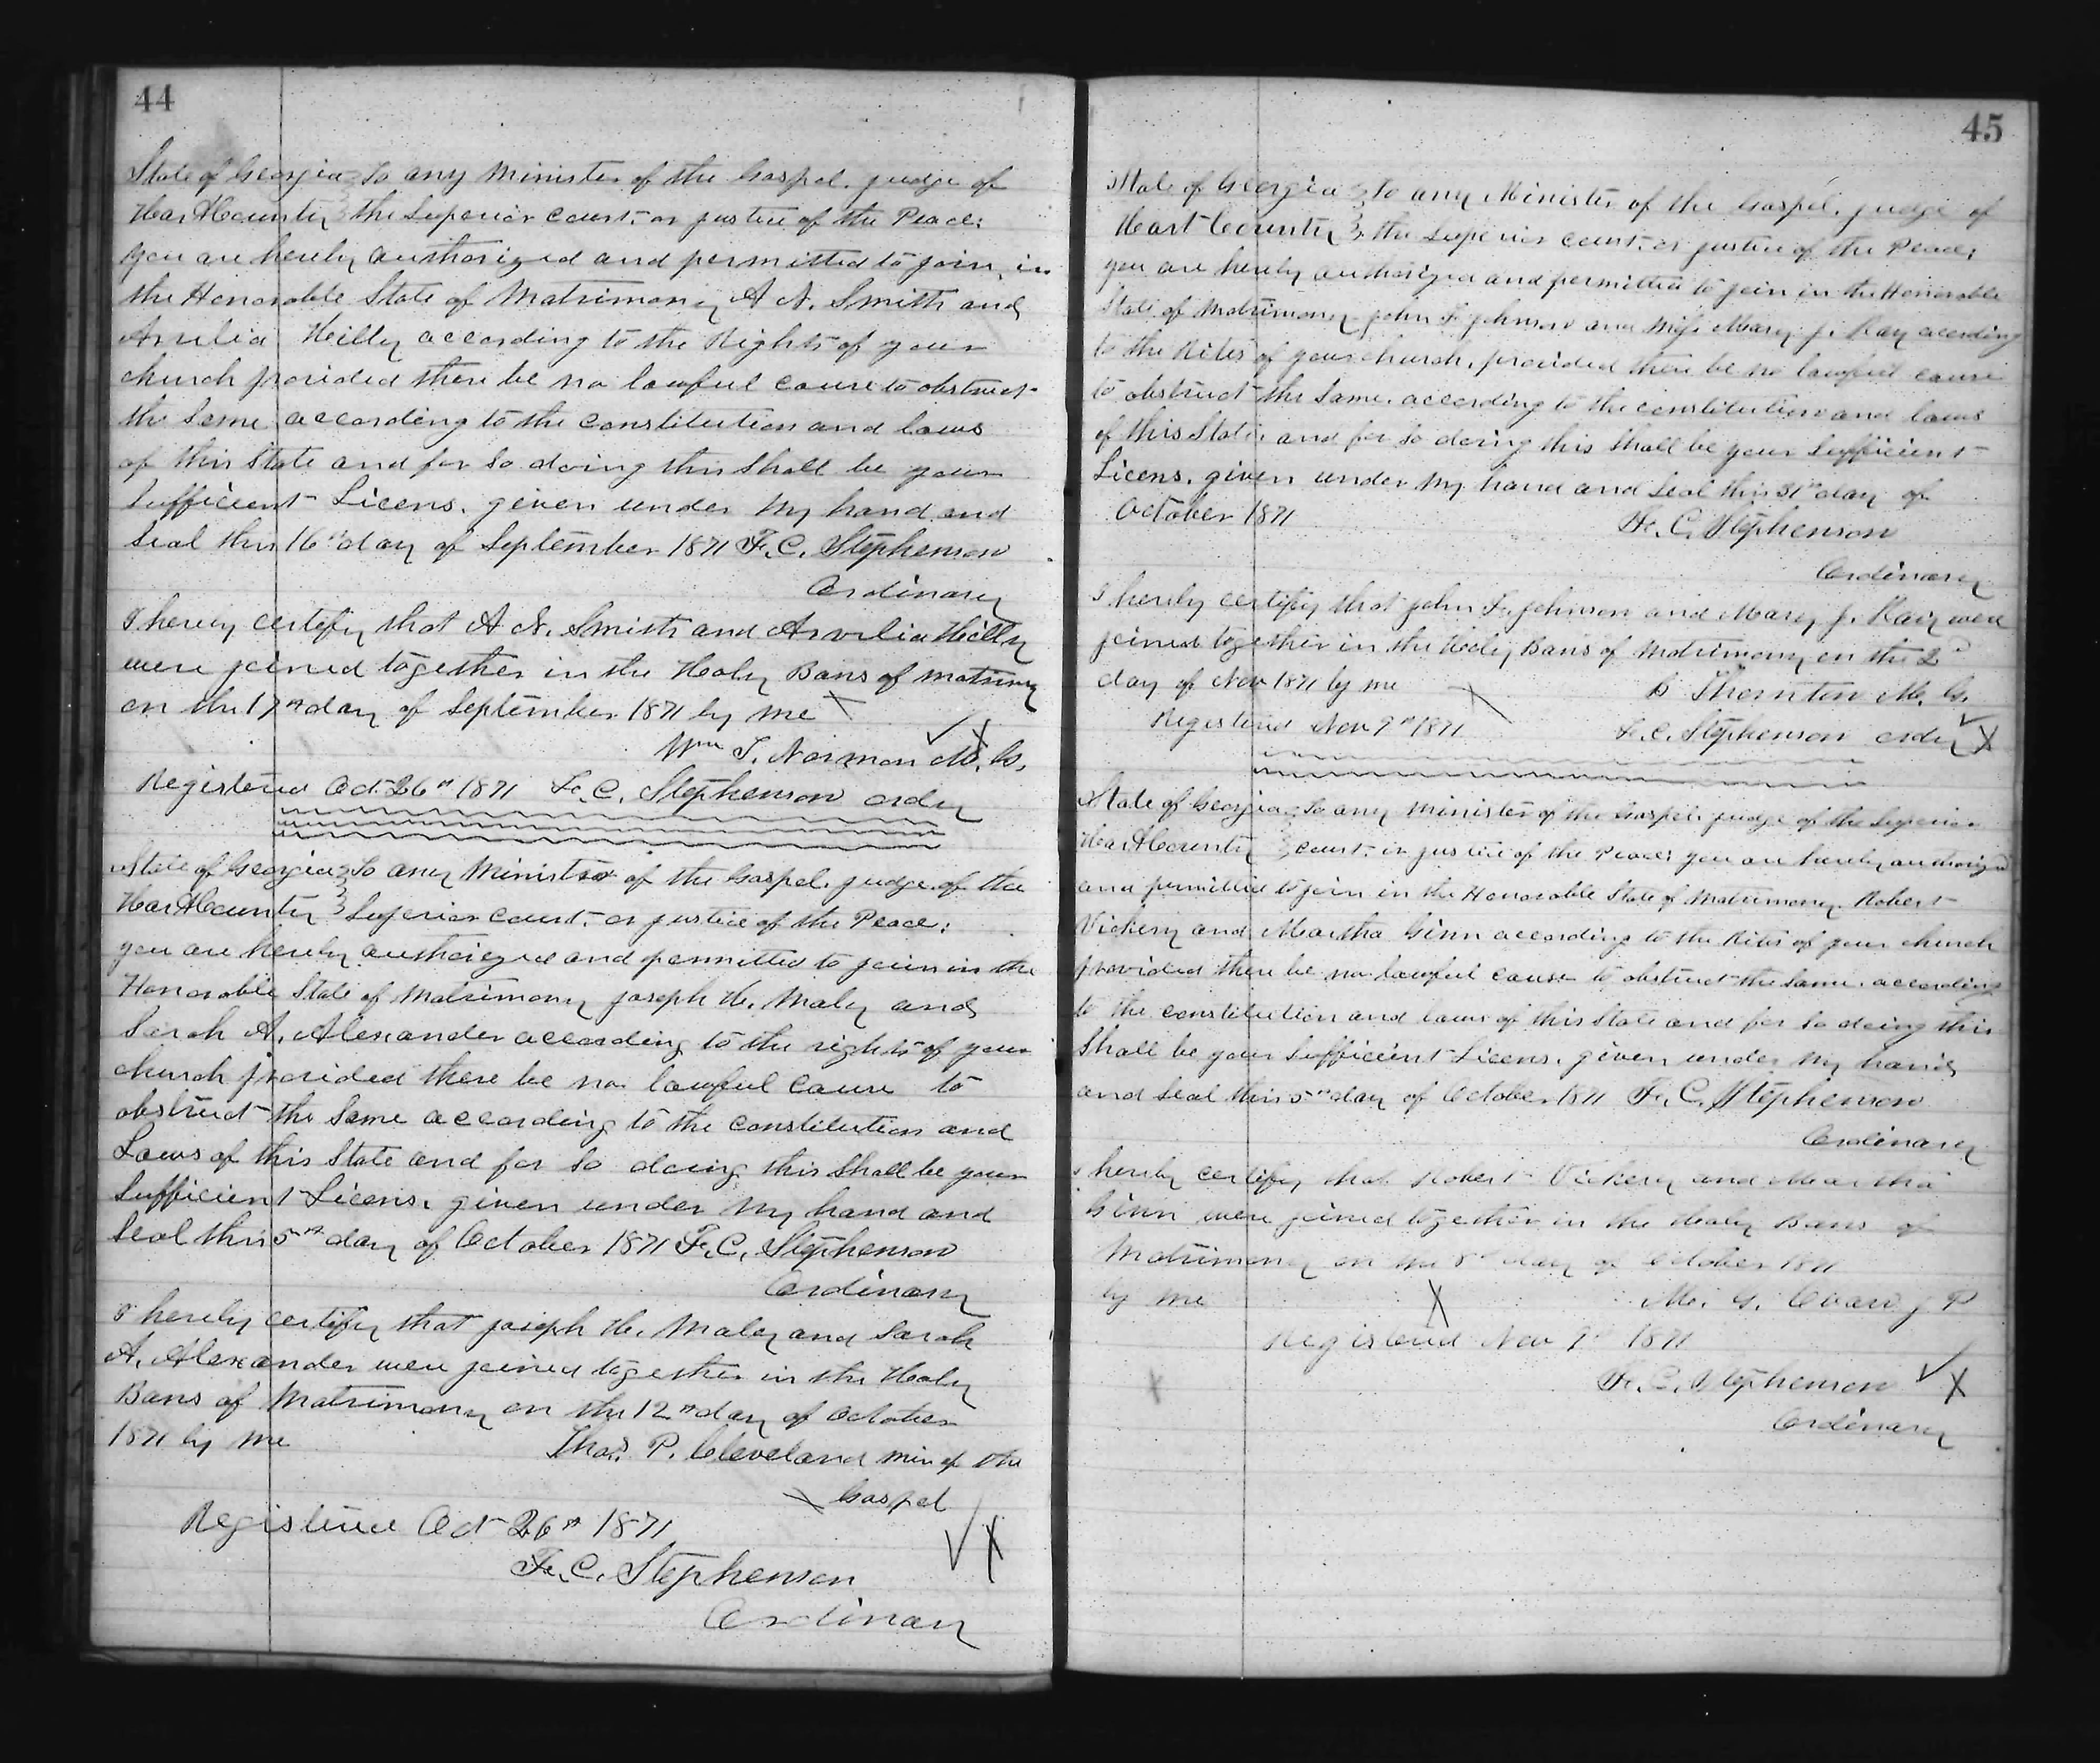 44
State of Georgia To any Minister of the Gospel, judge of
Hart County the Superior court, or justice of the Peace:
you are hereby authorized and permitted to join, in
the Honorable State of Matrimony A N. Smith and
Hilly according to the Rights of your
church provided there be no lawful cause to obstruct
the same according to the constitution and laws
of this State and for so doing this shall be your
Sufficient Licens, given under my hand and
Seal this 16th day of September 1871 F. C. Stephenson
Ordinary
I herey certify that A N. Smith and Hilly
were joined together in the Holy Bans of matrimy
on the 17th day of September 1871 by me
Wm T. Norman M. G.
Registered Oct. 26th 1871 F. C. Stephenson ordy
State of Georgia To any Minister of the Gospel, judge of the
Hart County Superior court, or justice of the Peace:
you are hereby authorized and permitted to join in the
Honorable State of Matrimony Joseph H. Maley and
Sarah A. Alexander according to the rights of your
church provided there be no lawful cause to
obstruct the same according to the constitution and
Laws of this State and for so doing this shall be your
Sufficient Licens, given under my hand and
Seal this 5th day of October 1871 F. C. Stephenson
Ordinary
I hereby certify that Joseph H. Maley and Sarah
A. Alexander were joined together in the Holy
Bans of Matrimony on the 12th day of October
1871 by me Thos. P. Cleveland min of the
Gospel
Registered Oct 26th 1871
F. C. Stephenson
Ordinary
45
State of Georgia To any Minister of the Gospel, judge of
Hart County the Superior court, or justice of the Peace;
you are hereby authorized and permitted to join in the Honorable
State of Matrimony John F. Johnson and Miss Mary J. Ray acording
to the Rites of your church, provided there be no lawful cause
to obstruct the same, according to the constitution and laws
of this State, and for so doing this shall be your Sufficient
Licens, given under my hand and Seal this 31st day of
October 1871 F. C. Stephenson
Ordinary
I hereby certify that John F. Johnson and Mary J. Ray were
joined together in the Holy Bans of Matrimony on the 2d
day of Nov 1871 by me B Thornton M. G.
Registered Nov 9th 1871 F. C. Stephenson ordy
State of Georgia To any Minister of the Gospel, judge of the Superior
Hart County court, or justice of the Peace; you are hereby authorized
and permitted to join in the Honorable State of Matrimony Robert
Vickery and Martha Ginn according to the Rites of your church
provided there be no lawful cause to obstruct the same, according
to the constitution and laws of this State and for so doing this
Shall be your Sufficient Licens, given under my hand
and Seal this 5th day of October 1871 F. C. Stephenson
Ordinary
I hereby certify that Robert Vickery and Martha
Ginn were joined together in the Holy Bans of
Matrimony on the 8th day of October 1871
by me J P
Registered Nov 9 1871
F. C. Stephenson
Ordinary